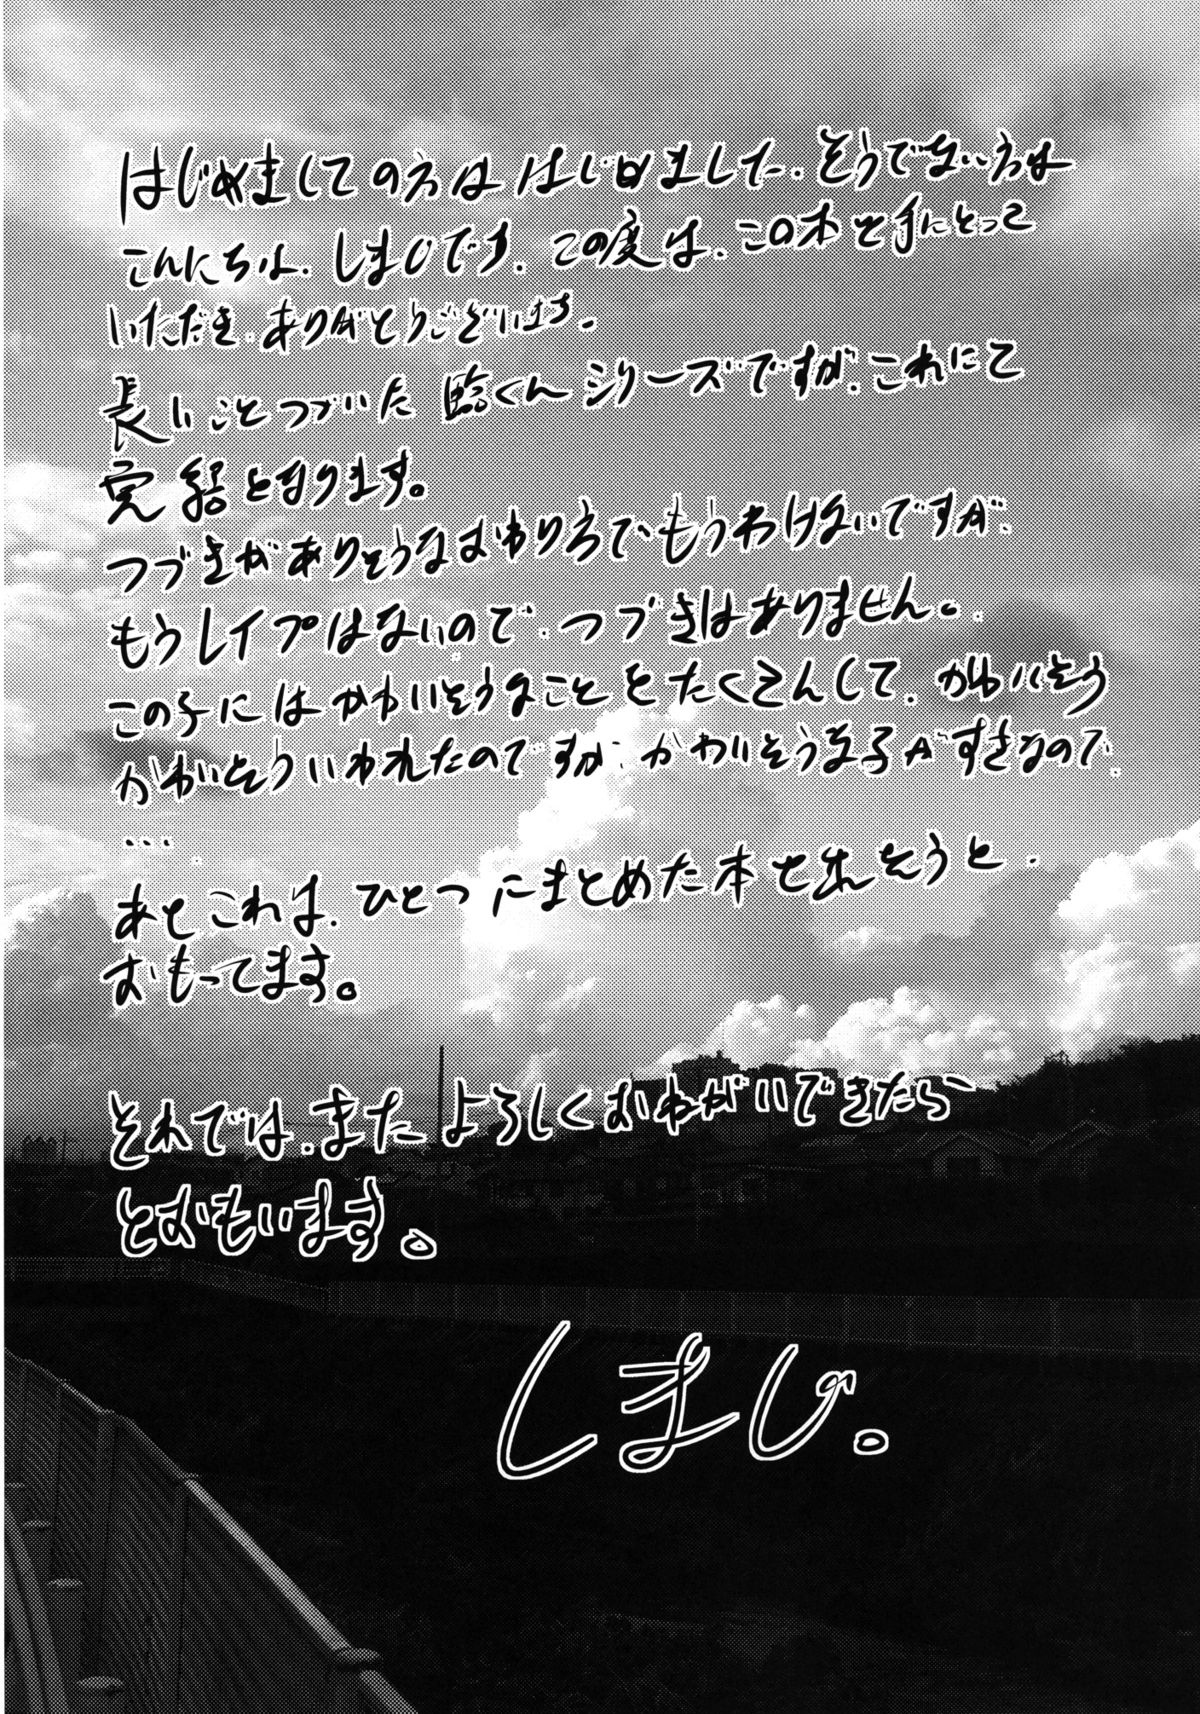 はじめましての方ははじめました、そうでない方は
こんにちは、しまじです、この度は、この本を手にとって
いただき、ありがとうございます。
長いことつづいた臨くんシリーズですが、これにて
完結となります。
つづきがありそうなおわり方でもうわけないですが、
もうレイプはないので、つづきはありません。
この子にはかわいそうなことをたくさんして、かわいそう
かわいそういわれたのですが、かわいそうな子がすきなので、
…
あとこれは、ひとつにまとめた本を出そうと、
おもってます。
それでは、またよろしくおねがいできたら
とおもいます。
しまじ。